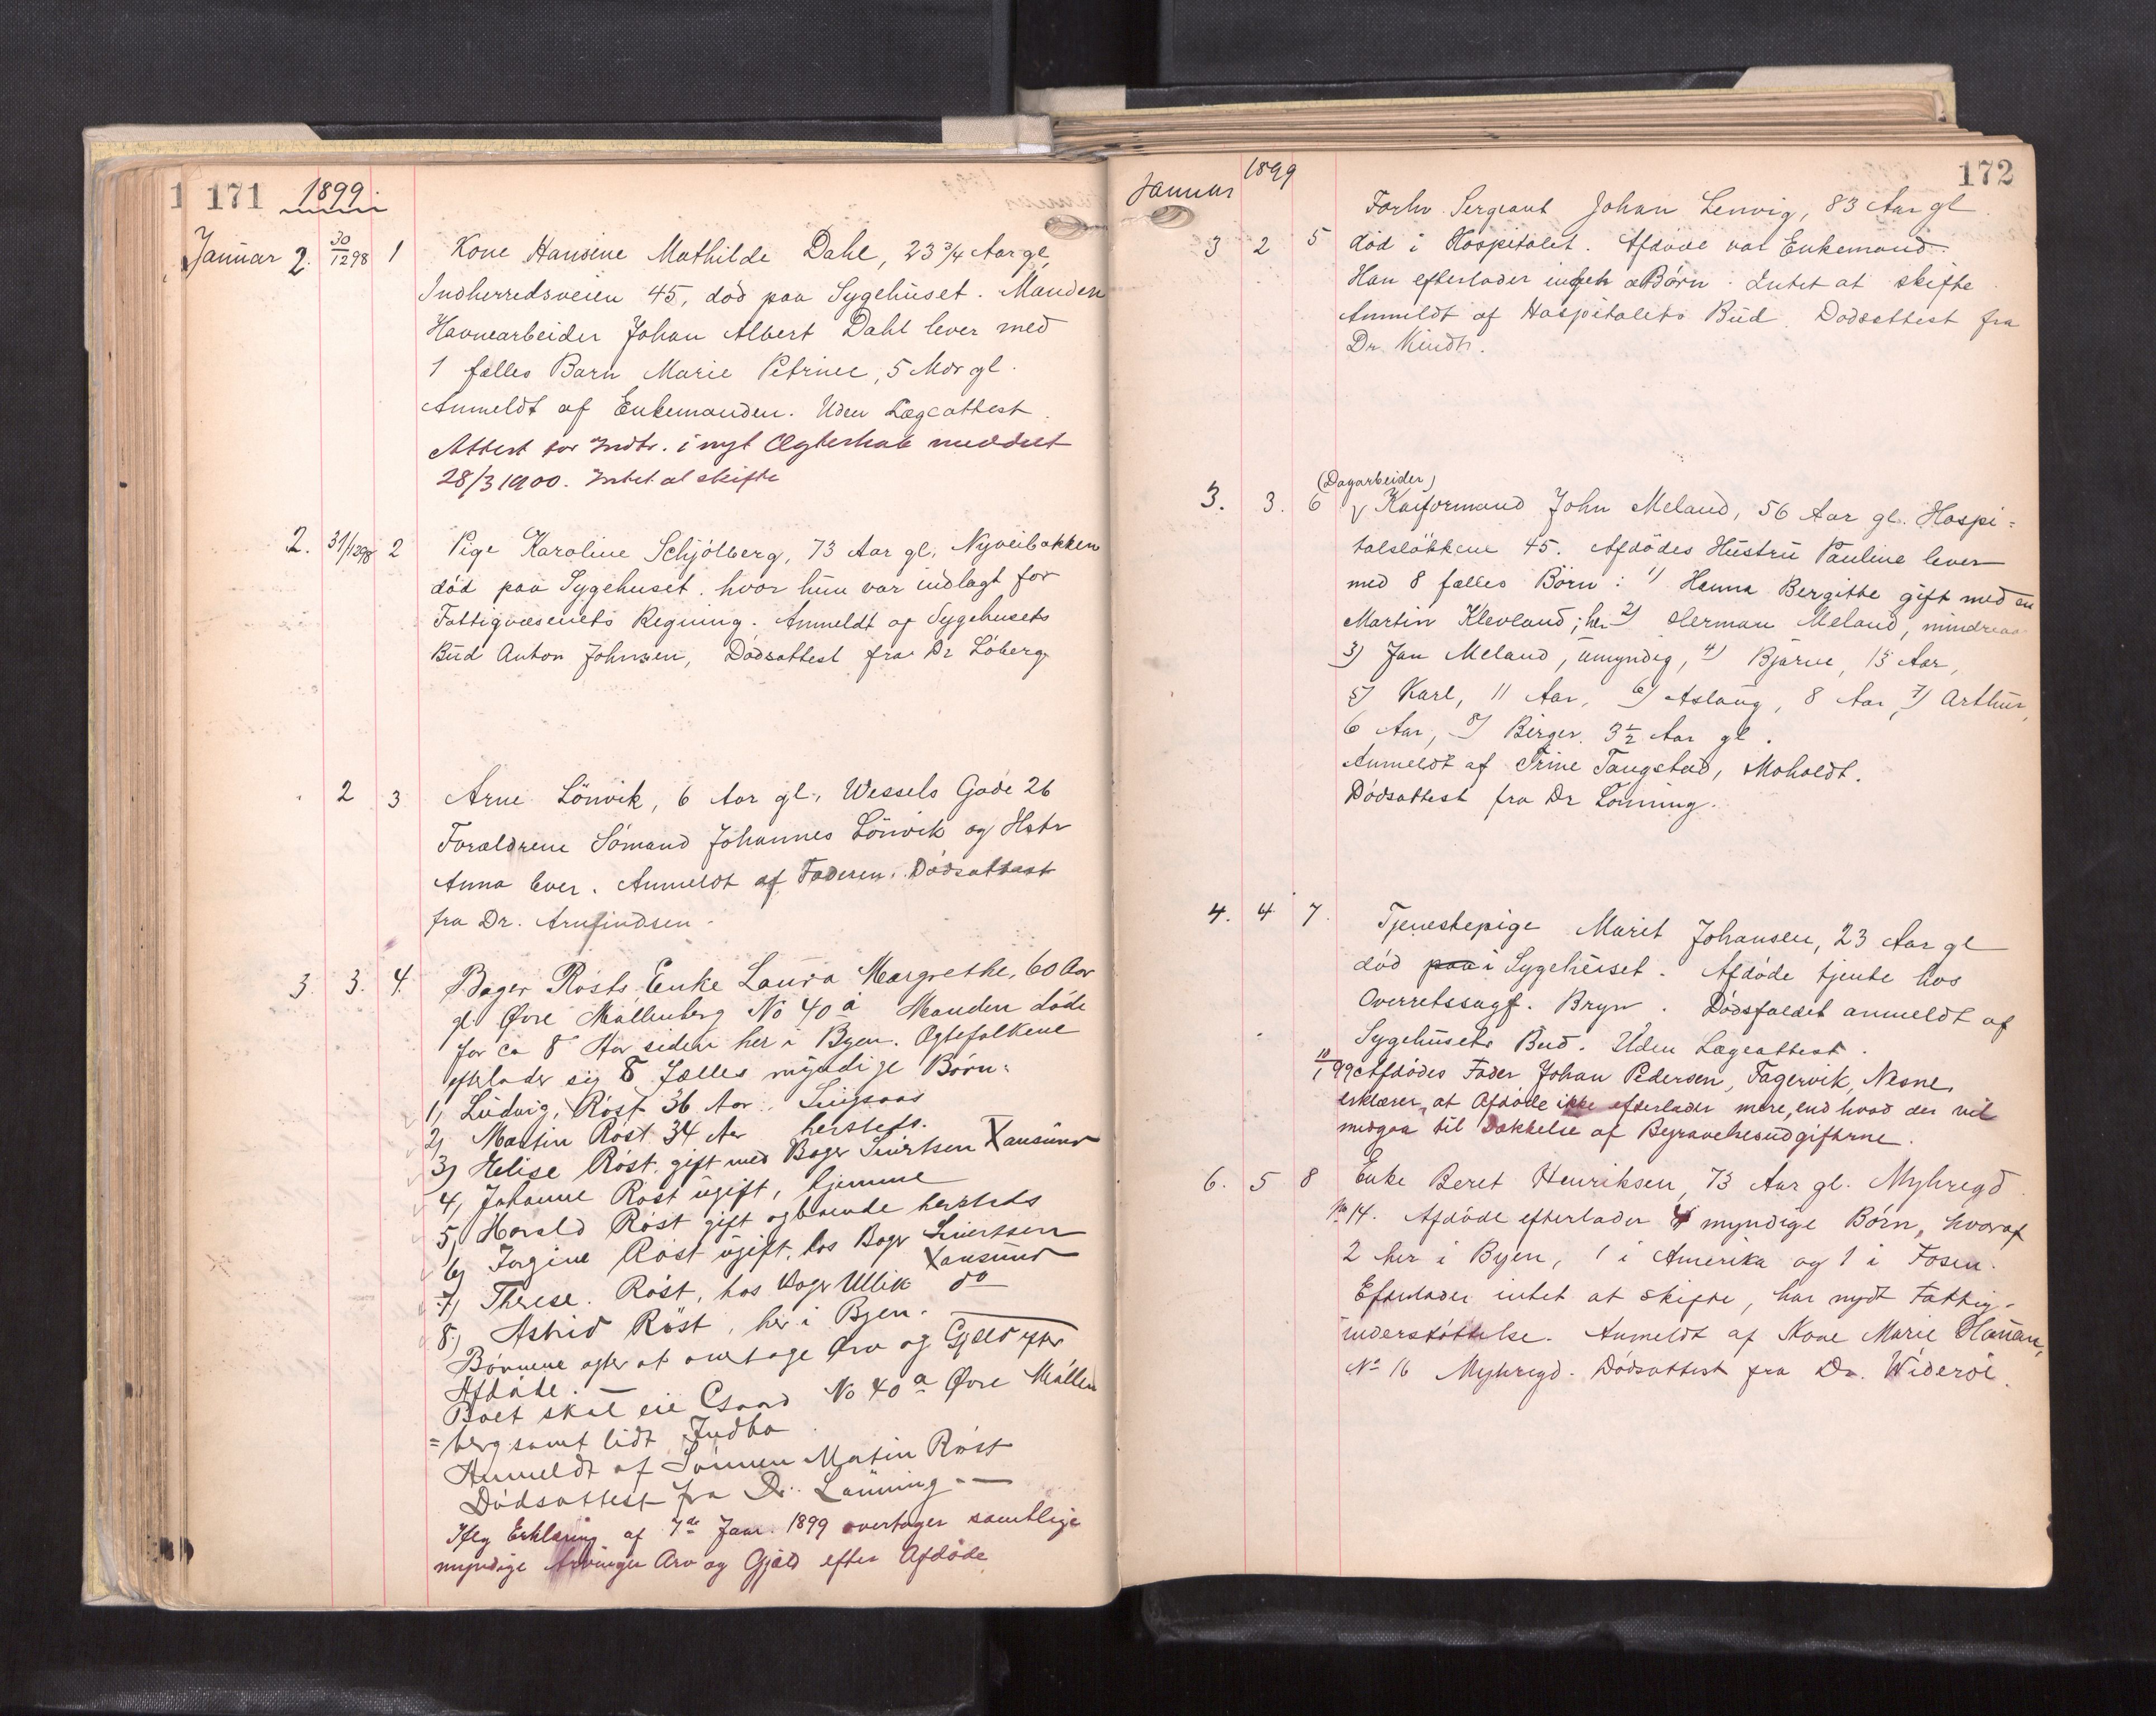 1 171 1899.
Januar 2. 30/12 98 1 Kone Hansine Mathilde Dahl, 23 3/4 Aar gl,
Indherredsveien 45, död paa Sygehuset. Manden
Havnearbeider Johan Albert Dahl lever med
1 fælles Barn Marie Petrine, 5 Mdr gl.
Anmeldt af Enkemanden. Uden Lægeattest.
Attest for Indtr. i nyt Ægteskab meddelt
28/3 1900. Intet at skifte
2. 31/12 98 2 Pige Karoline Schjölberg, 73 Aar gl, Nyveibakken
död paa Sygehuset. hvor hun var indlagt for
Fattigvæsenets Regning. Anmeldt af Sygehusets
Bud Anton Johnsen, Dödsattest fra Dr Löberg
2 3 Arne Lönvik, 6 Aar gl., Wessels Gade 26
Forældrene Sömand Johannes Lönvik og Hstr
Anna lever. Anmeldt af Faderen. Dödsattest
fra Dr. Arnfindsen.
3. 3. 4. Bager Rösts Enke Laura Margrethe, 60 Aar
gl. Øvre Möllenberg No 40 a Manden döde
for ca 8 Aar siden her i Byen. Ægtefolkene
efterlader sig 8 fælles myndige Börn:
1, Ludvig, Röst 36 Aar. Singsaas
2, Martin Röst 34 Aar hersteds.
3) Helise Röst, gift med Bager Sivertsen Xansund
4, Johanne Röst ugift, hjemme
5, Harald Röst gift og boende hersteds
6, Jørgine Röst ugift, hos Bager Sivertsen Xansund
7, Therese Röst, hos Bager Ullik do
8.) Astrid Röst, her i Byen.
Börnene agter at overtage Arv og Gjæld efter
Afdöde.
Boet skal eie Gaard No 40 a Øvre Möllen
=berg samt lidt Indbo.
Anmeldt af Sönnen Martin Röst
Dödsattest fra Dr. Lönning.
Iflg Erklæring af 7de Janr. 1899 overtager samtlige
myndige Arvinger Arv og Gjæld efter Afdöde
Januar 1899 172
Forhv. Sergeant Johan Lenvig, 83 Aar gl.
3 2 5 död i Hospitalet. Afdöde var Enkemand.
Han efterlader ingen Börn. Intet at skifte
Anmeldt af Hospitalets Bud. Dödsattest fra
Dr. Kindt.
(Dagarbeider)
3. 3. 6 Karformand John Meland, 56 Aar gl. Hospi=
talslökkene 45. Afdödes Hustru Pauline lever
med 8 fælles Börn: 1) Hanna Bergitte gift med
Martin Klevland; her 2) Herman Meland, mindreaa
3) Jan Meland, umyndig, 4) Bjarne, 13 Aar,
5) Karl, 11 Aar, 6) Aslaug, 8 Aar, 7) Arthur,
6 Aar, 8) Birger. 3 1/2 Aar gl.
Anmeldt af Trine Tangstad, Moholdt.
Dödsattest fra Dr Lönning.
4. 4 7. Tjenestepige Marit Johansen, 23 Aar gl
död paa i Sygehuset. Afdöde tjente hos
Overretssagf. Bryn. Dödsfaldet anmeldt af
Sygehusets Bud. Uden Lægeattest.
10/1 99 Afdödes Fader Johan Pedersen, Fagervik, Nesne,
erklærer, at Afdöde ikke efterlader mere, end hvad der vil
medgaa til Dækkelse af Begravelsesudgifterne.
6. 5 8 Enke Beret Henriksen, 73 Aar gl. Myhregd.
No 14. Afdöde efterlader 4 myndige Börn, hvoraf
2 her i Byen, 1 i Amerika og 1 i Fosen.
Efterlader intet at skifte, har nydt Fattig-
understöttelse. Anmeldt af Kone Marie
No 16 Myhregd. Dödsattest fra Dr. Wideröe.